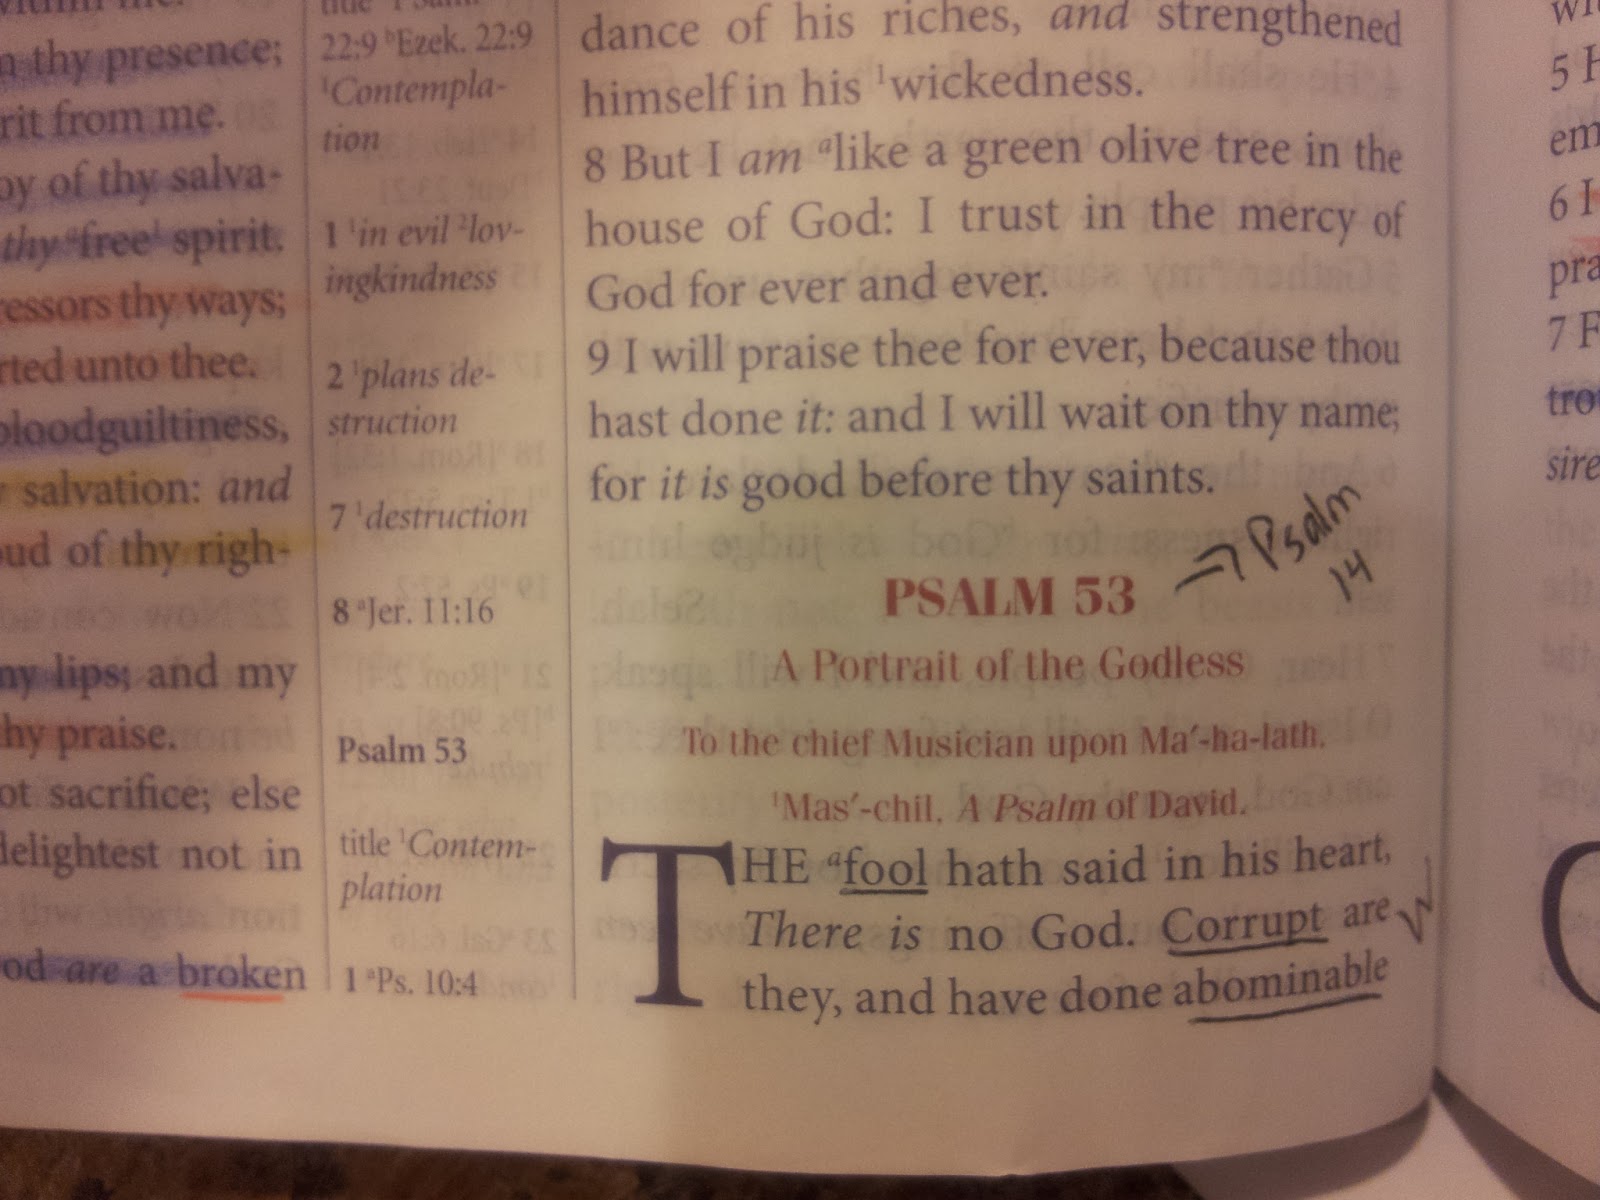 n thy presence;
rit from me.
oy of thy salva-
thy ᵃfree¹ spirit.
ressors thy ways;
rted unto thee.
bloodguiltiness,
salvation: and
oud of thy righ-
my lips; and my
thy praise.
ot sacrifice; else
delightest not in
od are a broken
22:9 ᵇEzek. 22:9
¹Contempla-
tion
1 ¹in evil ²lov-
ingkindness
2 ¹plans de-
struction
7 ¹destruction
8 ᵃJer. 11:16
Psalm 53
title ¹Contem-
plation
1 ᵃPs. 10:4
dance of his riches, and strengthened
himself in his ¹wickedness.
8 But I am ᵃlike a green olive tree in the
house of God: I trust in the mercy of
God for ever and ever.
9 I will praise thee for ever, because thou
hast done it: and I will wait on thy name;
for it is good before thy saints.
PSALM 53 → Psalm
14
A Portrait of the Godless
To the chief Musician upon Ma′-ha-lath.
¹Mas′-chil. A Psalm of David.
THE ᵃfool hath said in his heart,
There is no God. Corrupt are
they, and have done abominable
5 H
em
6 I
pra
7 F
trou
sire